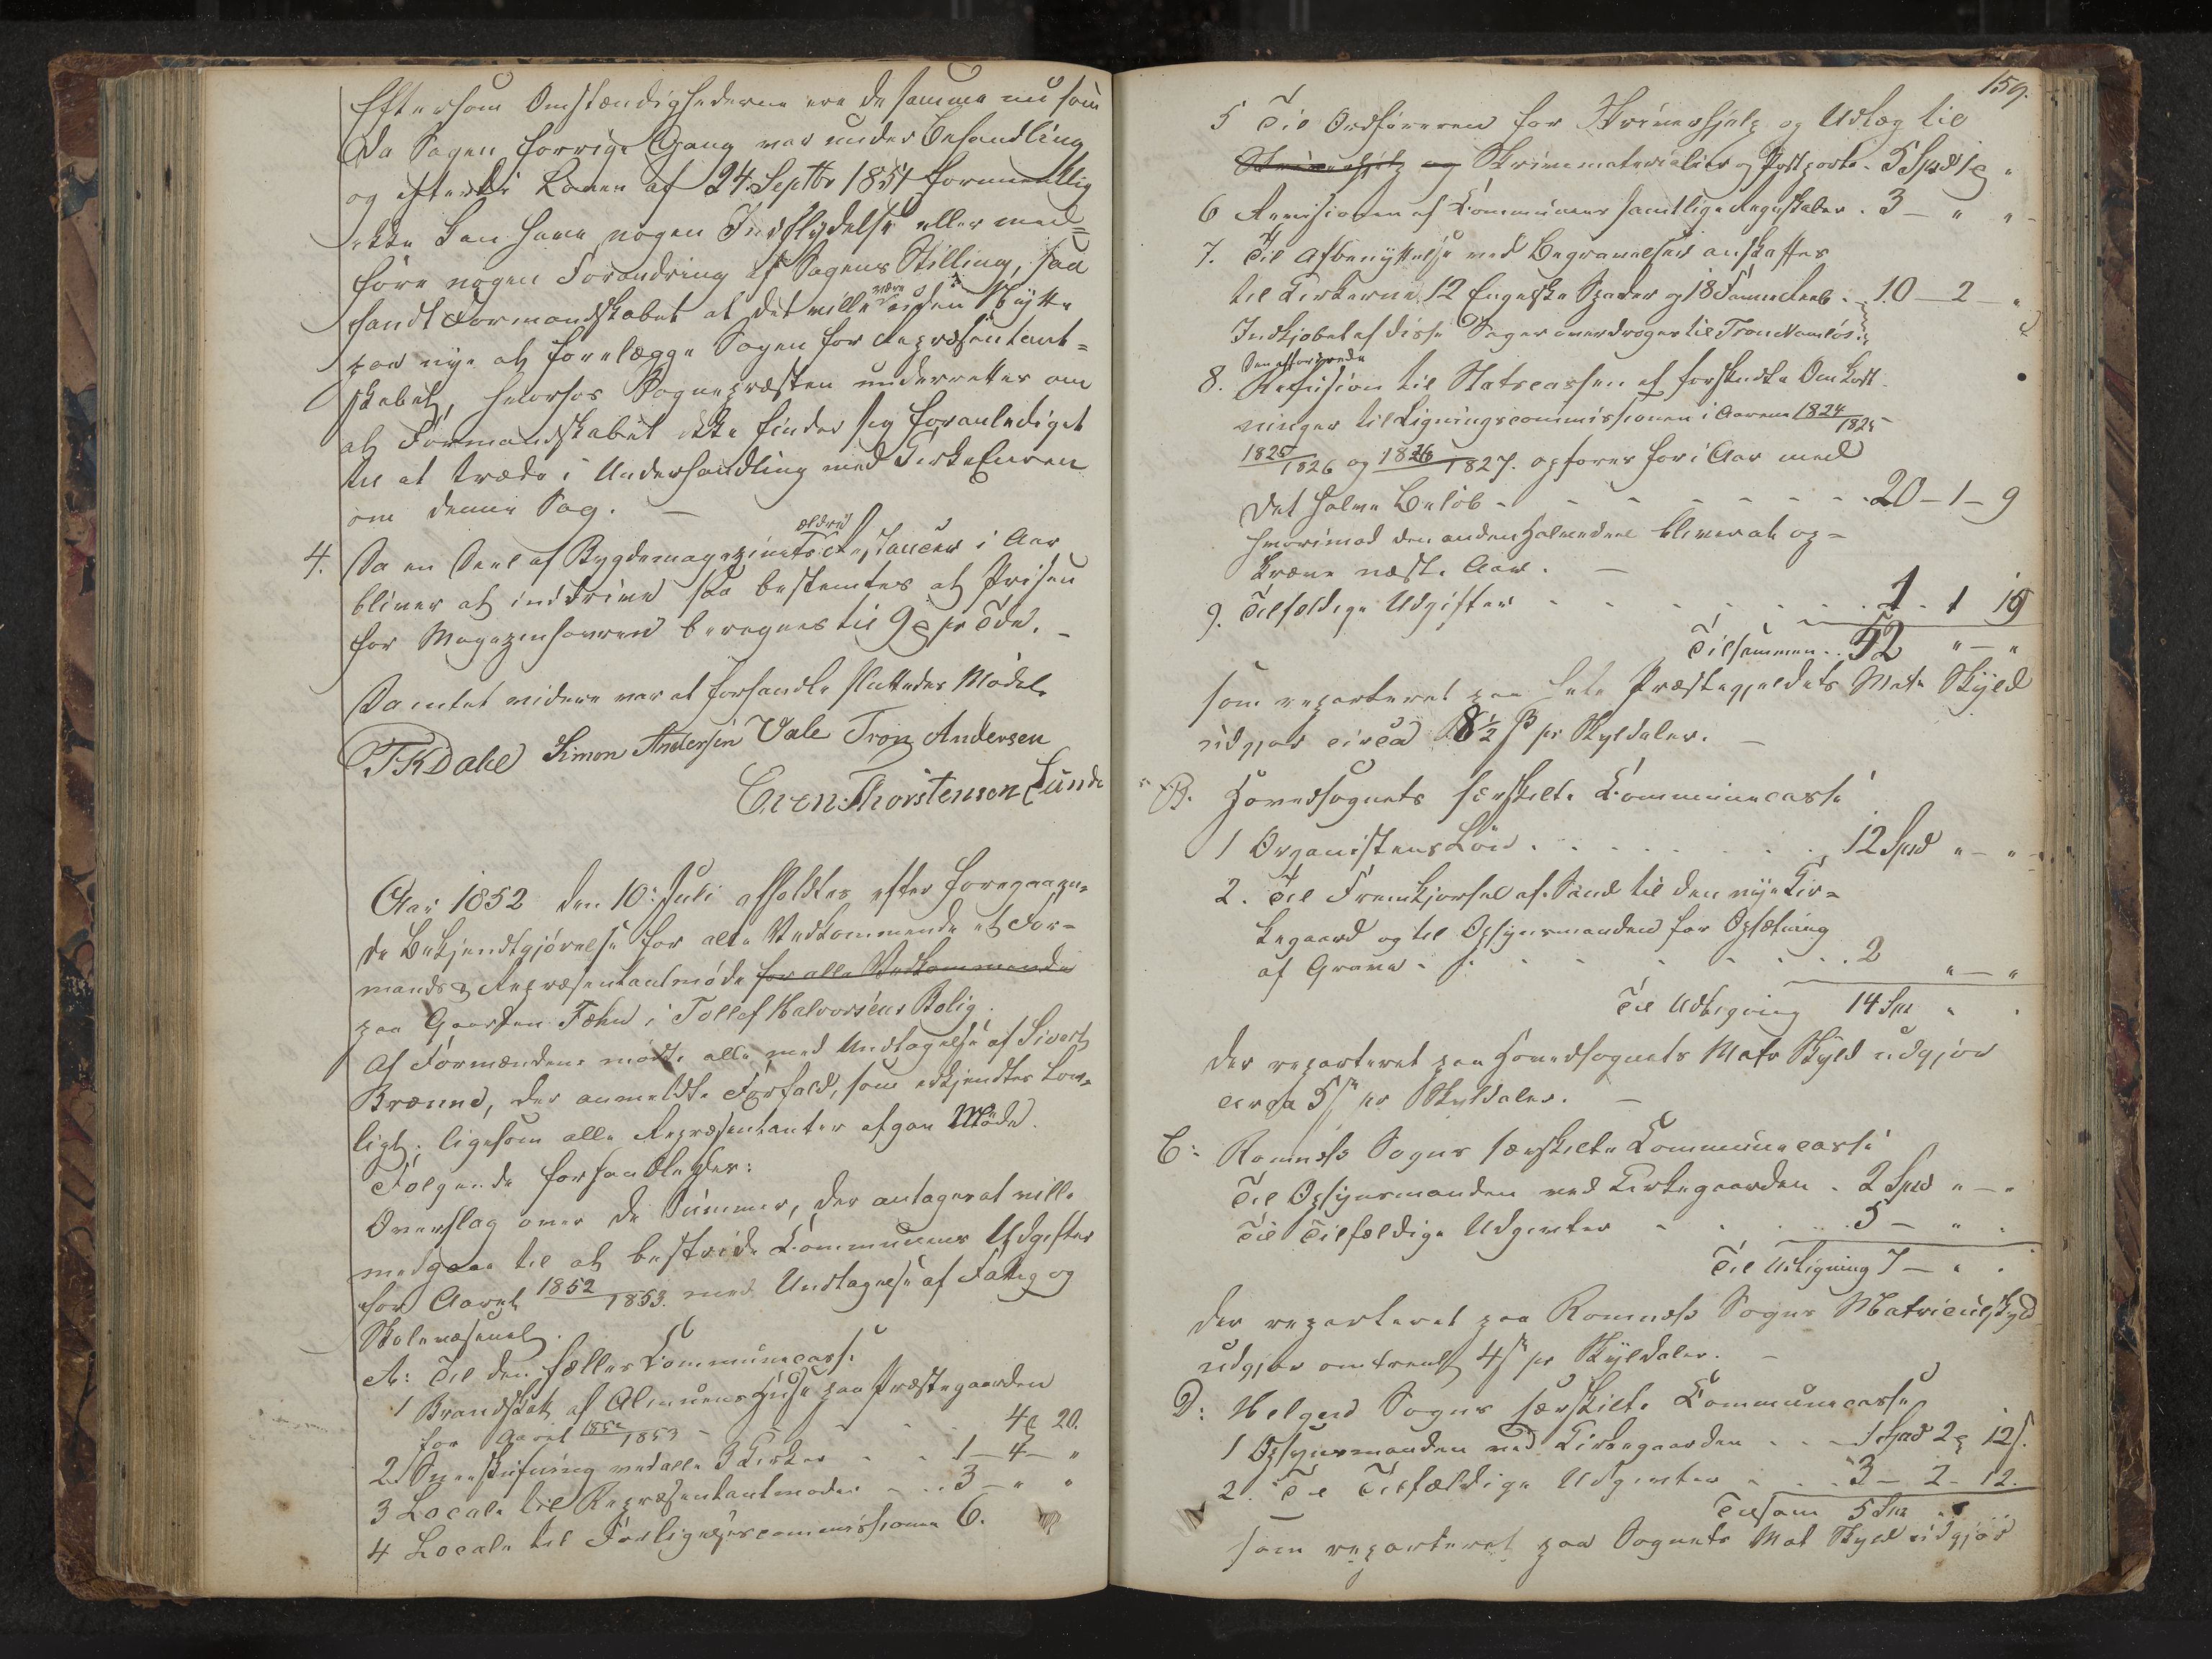 Eftersom Omstændighederne ere de samme nu som
da Sagen forrige Gang var under Behandling
og efterdi Loven af 24 Septbr 1851 formentlig
ikke kan have nogen Indflydelse eller med=
føre nogen Forandring af Sagens Stilling, saa
fandt Formandskabet at det ville være uden Nytte
paa nye at forelægge Sagen for Repræsentant=
skabet, hvorfor Sognepræsten underrettes om
at Formandskabet ikke finder sig foranlediget
til at træde i Underhandling med Kirkeeieren
om denne Sag. —
4. Da en Deel af Bygdemagazinets ældre Restancer i Aar
bliver at inddrive saa bestemtes at Prisen
for Magazinhavren beregnes til 9 pr Tde. —
Da intet videre var at forhandle sluttedes Mødet.
TKDahl Simon Andersen Vale Tron Andersen
Even Thorstensen Lunde
Aar 1852 den 10. Juli afholdtes efter foregaaen=
de Bekjendtgjørelse for alle Vedkommende et For=
mands & Repræsentantmøde for alle Vedkommende
paa Gaarden Fæhn i Tollef Halvorsens Bolig.
Af Formændene mødte alle med Undtagelse af Sivert
Brænne, der anmeldte Forfald, som erkjendtes lov=
ligt, ligesom alle Repræsentanter afgav Møde.
Følgende forhandledes:
Overslag over de Summer, der antages at ville
medgaae til at bestride Communens Udgifter
for Aaret 1852/1853. med Undtagelse af Fattig og
Skolevæsenet.
A: Til den fælles Communecasse
1 Brandskat af Almuens Huse paa Præstegaarden
for Aaret 1852/1853 - - - 4 20.
2. Sneeskufning ved alle 3 Kirker - - 1 - 4 - "
3 Locale til Repræsentantmøder - .. 3 - " "
4 Locale til Forligelsescommissionen 6.
159.
5 Til Ordføreren for Skriverhjelp og Udlæg til
Skriverhjelp og Skrivematerialier og Postporto. 5 Spd 1 "
6 Revisionen af Communens samtlige Regnskaber . 3 - " "
7. Til Afbenyttelse ved Begravelser anskaffes
til Kirkerne 12 Engelske Spader og 18 Favne Reeb. . 10 - 2 - "
Indkjøbet af disse Sager overdroges til Tron Namløs.
8. Den efterspurgte Refusion til Statscassen af forskudte Omkost
ninger til Ligningscommissionen i Aarene 1824/1825 -
1825/1826 og 1826/1827. opføres for i Aar med
det halve Beløb - - - - - - - 20 - 1 - 9
hvorimod den anden Halvdeel bliver at op=
kræve næste Aar. —
9. Tilfeldige Udgifter - - - - - 1 . 1 19
Tilsammen .. 52 " - "
som reparteret paa hele Præstegjeldets Matr Skyld
udgjør circa 8½ ß pr Skyldaler. —
B. Hovedsognets særskilte Communecasse
1 Organistens Løn . . . . . . 12 Spd " - "
2. Til Fremkjørsel af Sand til den nye Kir=
kegaard og til Opsynsmanden for Opsætning
af Grave - - - - - - - 2 " - "
Til Udligning 14 Spd " .
der reparteret paa Hovedsognets Matr Skyld udgjør
circa 5 ß pr Skyldaler. —
C: Romnæs Sogns særskilte Communecasse
Til Opsynsmanden ved Kirkegaarden . 2 Spd " - "
Til Tilfældige Udgivter - - - 5 - " "
Til Udligning 7 - " .
der reparteret paa Romnæs Sogns Matriculskyld
udgjør omtrent 4 ß pr Skyldaler. —
D: Helgens Sogns særskilte Communecasse
1 Opsynsmanden ved Kirkegaarden . . - 1 Spd 2 12 ß.
2. Til Tilfældige Udgivter - - - 3 - 2 - 12.
Tilsam 5 Spd
som reparteret paa Sognets Mat Skyld udgjør